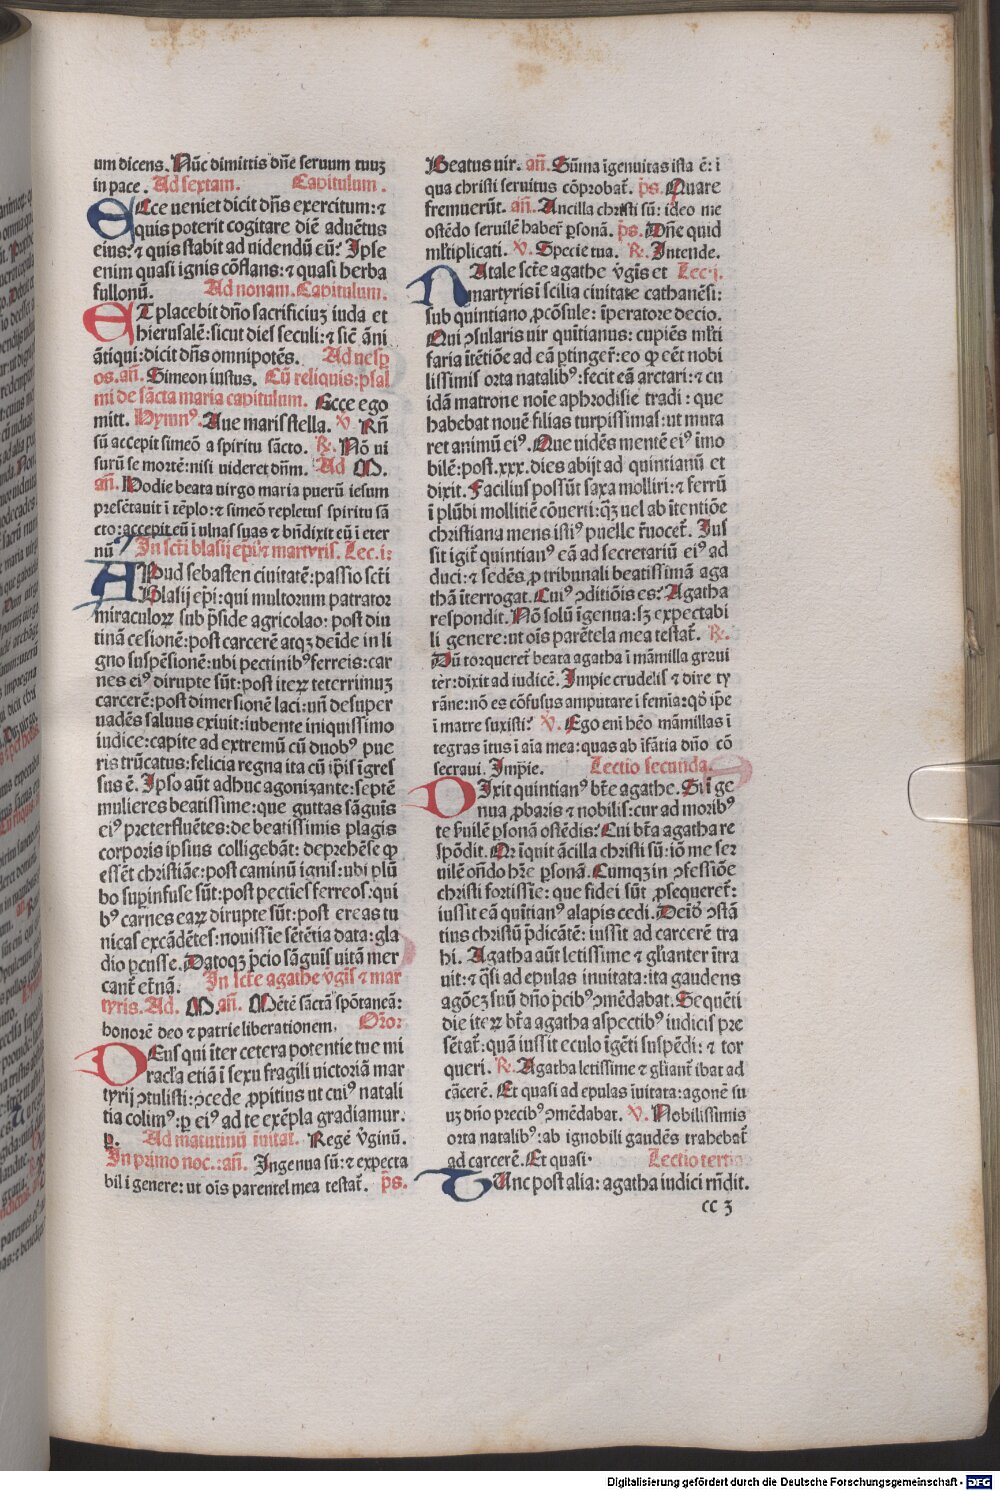 um dicens. Nūc dimittis dn̄e seruum tuuȝ
in pace. Ad sextam. Capitulum.
ECce ueniet dicit dn̄s exercitum: ⁊
quis poterit cogitare diē aduētus
eius? ⁊ quis stabit ad uidendū eū? Ipse
enim quasi ignis cōflans: ⁊ quasi herba
fullonū. Ad nonam. Capitulum.
ET placebit dn̄o sacrificiuȝ iuda et
hierusalē: sicut dies seculi: ⁊ sic̄ āni
ātiqui: dicit dn̄s omnipotēs. Ad uesp
os. añ. Simeon iustus. Cū reliquis: psal
mi de sācta maria capitulum. Ecce ego
mitt. Hymnꝰ. Aue maris stella. ℣ Rn̄
sū accepit simeō a spiritu sācto. ℟. Nō ui
surū se mortē: nisi uideret dn̄m. Ad M.
añ. Hodie beata uirgo maria puerū iesum
presētauit ī tēplo: ⁊ simeō repletus spiritu sā
cto: accepit eū ī ulnas suas ⁊ bn̄dixit eū ī eter
nū? In scti blasij epi ⁊ martyris. Lec. i:
APud sebasten ciuitatē: passio scti
Blasij epi: qui multorum patrator
miraculoꝝ sub p̄side agricolao: post diu
tinā cesionē: post carcerē atqȝ deīde in li
gno suspēsionē: ubi pectinibꝰ ferreis: car
nes eiꝰ dirupte sūt: post iteꝝ teterrimuȝ
carcerē: post dimersionē laci: un̄ desuper
uadēs saluus exiuit: iubente iniquissimo
iudice: capite ad extremū cū duobꝰ pue
ris trūcatus: felicia regna ita cū ip̄is īgres
sus ē. Ipso aūt adhuc agonizante: septē
mulieres beatissime: que guttas sāguīs
eiꝰ preterfluētes: de beatissimis plagis
corporis ipsius colligebāt: deprehēse ꝙ
essēt christiāe: post caminū ignis: ubi plū
bo supinfuse sūt: post pectīes ferreos: qui
bꝰ carnes eaꝝ dirupte sūt: post ereas tu
nicas excādētes: nouissīe sētētia data: gla
dio pcusse. Datoqȝ p̄cio sāguīs uitā mer
cant̄ et̄nā. In scte agathe v̄gīs ⁊ mar
tyris. Ad. M. añ. Mētē sāctā spōtaneā:
honorē deo ⁊ patrie liberationem. Oro:
DEus qui īter cetera potentie tue mi
racl̄a etiā ī sexu fragili uictoriā mar
tyrij ꝯtulisti: ꝯcede ꝓpitius ut cuiꝰ natali
tia colimꝰ: p eiꝰ ad te exēpla gradiamur.
p. Ad matutinū īuitat. Regē v̄ginū.
In primo noc.: añ. Ingenua sū: ⁊ expecta
bili genere: ut oīs parentel mea testat̄. ps.
Beatus uir. añ. Sūma īgenuitas ista ē: ī
qua christi seruitus cōprobat̄. ps. Quare
fremuerūt. añ. Ancilla christi sū: ideo me
ostēdo seruilē haber̄ psonā. ps. Dn̄e quid
ml̄tiplicati. ℣. Specie tua. ℟. Intende.
NAtale scte agathe v̄gīs et Lec. i.
martyris ī scilia ciuitate cathanēsi:
sub quintiano ꝓcōsule: īperatore decio.
Qui ꝯsularis uir quītianus: cupiēs ml̄ti
faria ītētiōe ad eā ptinger̄: eo ꝙ eēt nobi
lissimis orta natalibꝰ: fecit eā arctari: ⁊ cu
idā matrone noīe aphrodisie tradi: que
habebat nouē filias turpissimas: ut muta
ret animū eiꝰ. Que uidēs mentē eiꝰ īmo
bilē: post .xxx. dies abijt ad quintianū et
dixit. Facilius possūt saxa molliri: ⁊ ferrū
ī plūbi mollitiē cōuerti: qȝ uel ab ītentiōe
christiana mens istiꝰ puelle r̄uocet̄. Ius
sit igit̄ quintianꝰ eā ad secretariū eiꝰ ad
duci: ⁊ sedēs ꝓ tribunali beatissimā aga
thā īterrogat. Cuiꝰ ꝯditiōis es? Agatha
respondit. Nō solū īgenua: sȝ expectabi
li genere: ut oīs parētela mea testat̄. ℟.
Dū torqueret̄ beata agatha ī māmilla graui
ter: dixit ad iudicē. Impie crudelis ⁊ dire ty
rāne: nō es cōfusus amputare ī femīa: qđ īpe
ī matre suxisti? ℣. Ego eni hēo māmillas ī
tegras ītus ī aīa mea: quas ab īfātia dn̄o cō
secraui. Impie. Lectio secunda.
DIxit quintianꝰ bt̄e agathe. Si īge
nua ꝓbaris ⁊ nobilis: cur ad moribꝰ
te suilē psonā ostēdis? Cui bt̄a agatha re
spōdit. Qr īquit ācilla christi sū: iō me ser
uilē on̄do hr̄e psonā. Cumqȝ in ꝯfessiōe
christi fortissīe: que fidei sūt ꝓsequeret̄:
iussit eā quītianꝰ alapis cedi. Deīđ ꝯstā
tius christū p̄dicātē: iussit ad carcerē tra
hi. Agatha aūt letissime ⁊ gl̄ianter ītra
uit: ⁊ q̄si ad epulas inuitata: ita gaudens
agōeȝ suū dn̄o p̄cibꝰ ꝯmēdabat. Sequēti
die iteꝝ bt̄a agatha aspectibꝰ iudicis pre
sētat̄: quā iussit eculo īgēti suspēdi: ⁊ tor
queri. ℟. Agatha letissime ⁊ gl̄iant̄ ibat ad
cācerē. Et quasi ad epulas īuitata: agonē su
uȝ dn̄o precibꝰ ꝯmēdabat. ℣. Nobilissimis
orta natalibꝰ: ab ignobili gaudēs trahebat̄
ad carcerē. Et quasi. Lectio tertia
TUnc post alia: agatha iudici rn̄dit.
cc 3
Digitalisierung gefördert durch die Deutsche Forschungsgemeinschaft - DFG